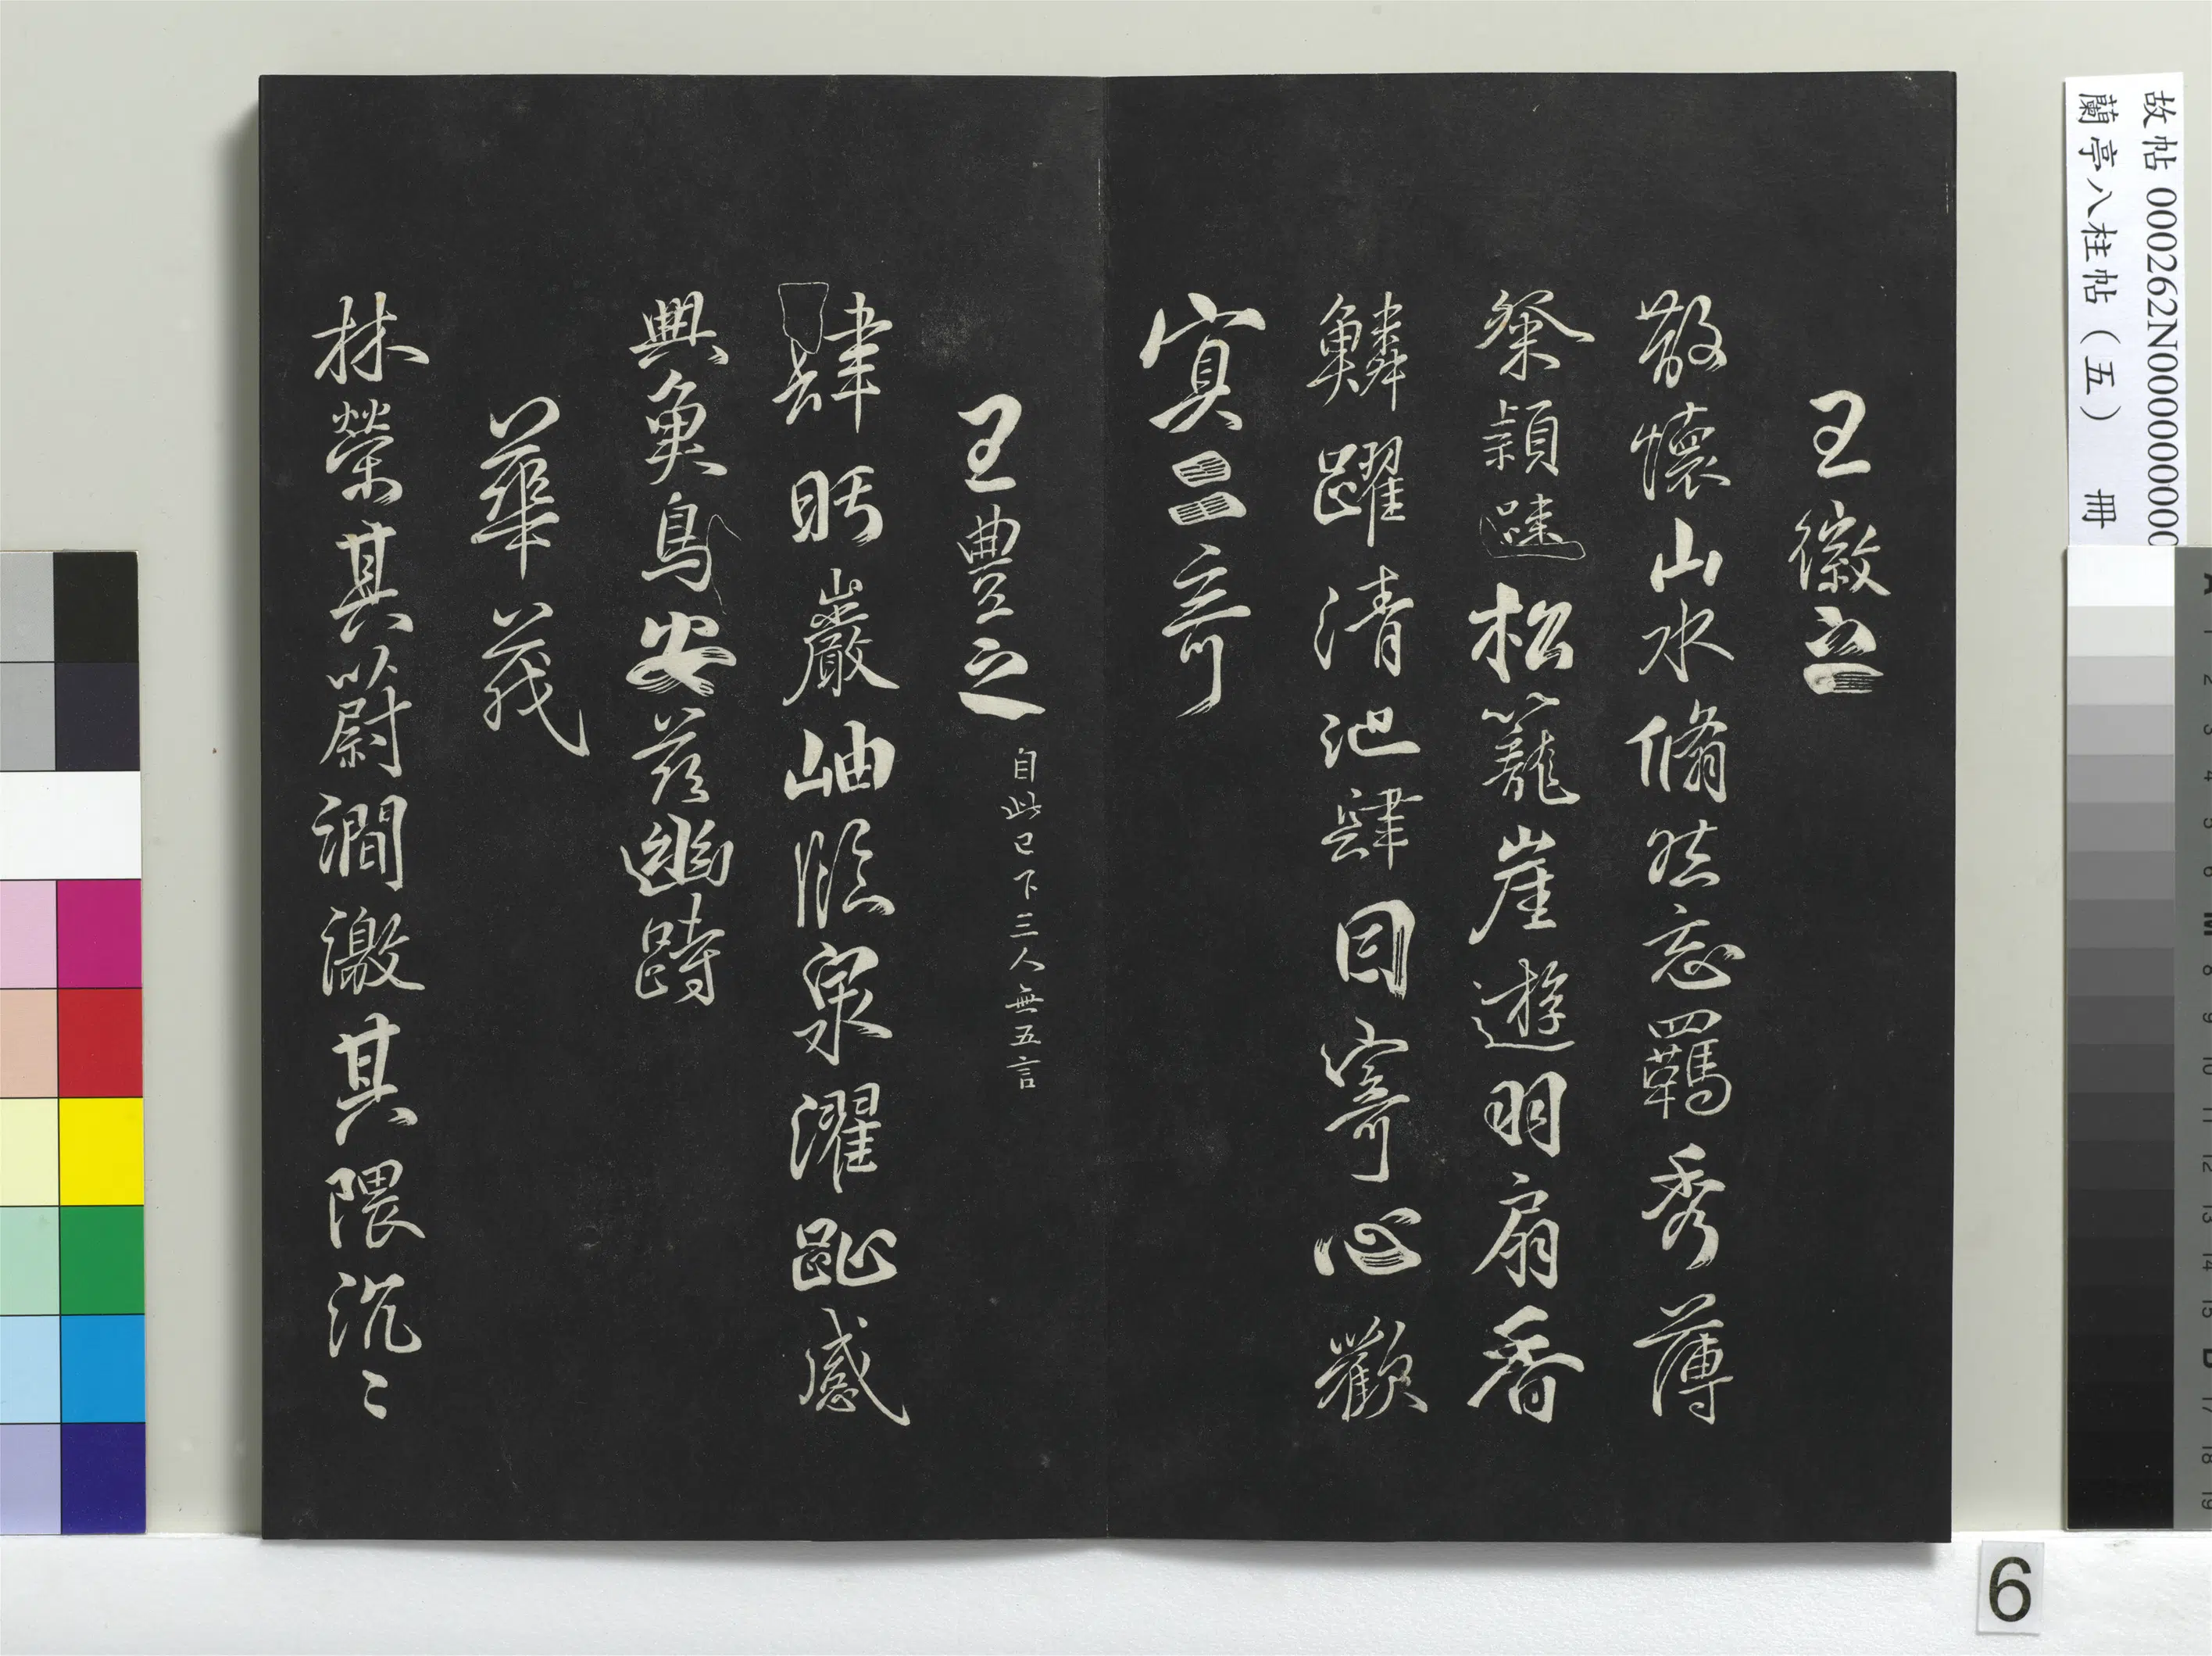 故帖 000262N000000000
蘭亭八柱帖（五） 冊
王徽之
散懷山水脩然忘羈秀薄
粲穎踈松籠崖遊羽扇香
鱗躍清池肆目寄心歡
冥二奇
王豐之 自此已下三人無五言
肆眄巖岫臨泉濯趾感
興魚鳥安茲幽跱
華茂
林榮其蔚澗激其隈沉〻
6